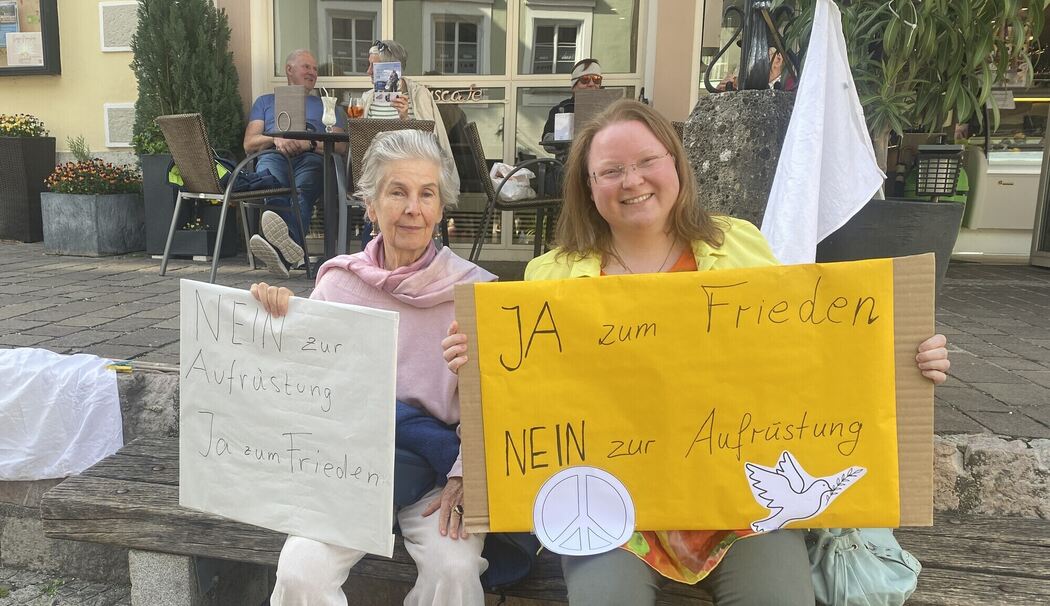 NEIN zur
Aufrüstung
Ja zum Frieden
JA zum Frieden
NEIN zur Aufrüstung